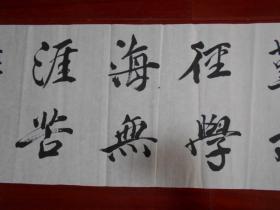 徑學
海無
涯苦